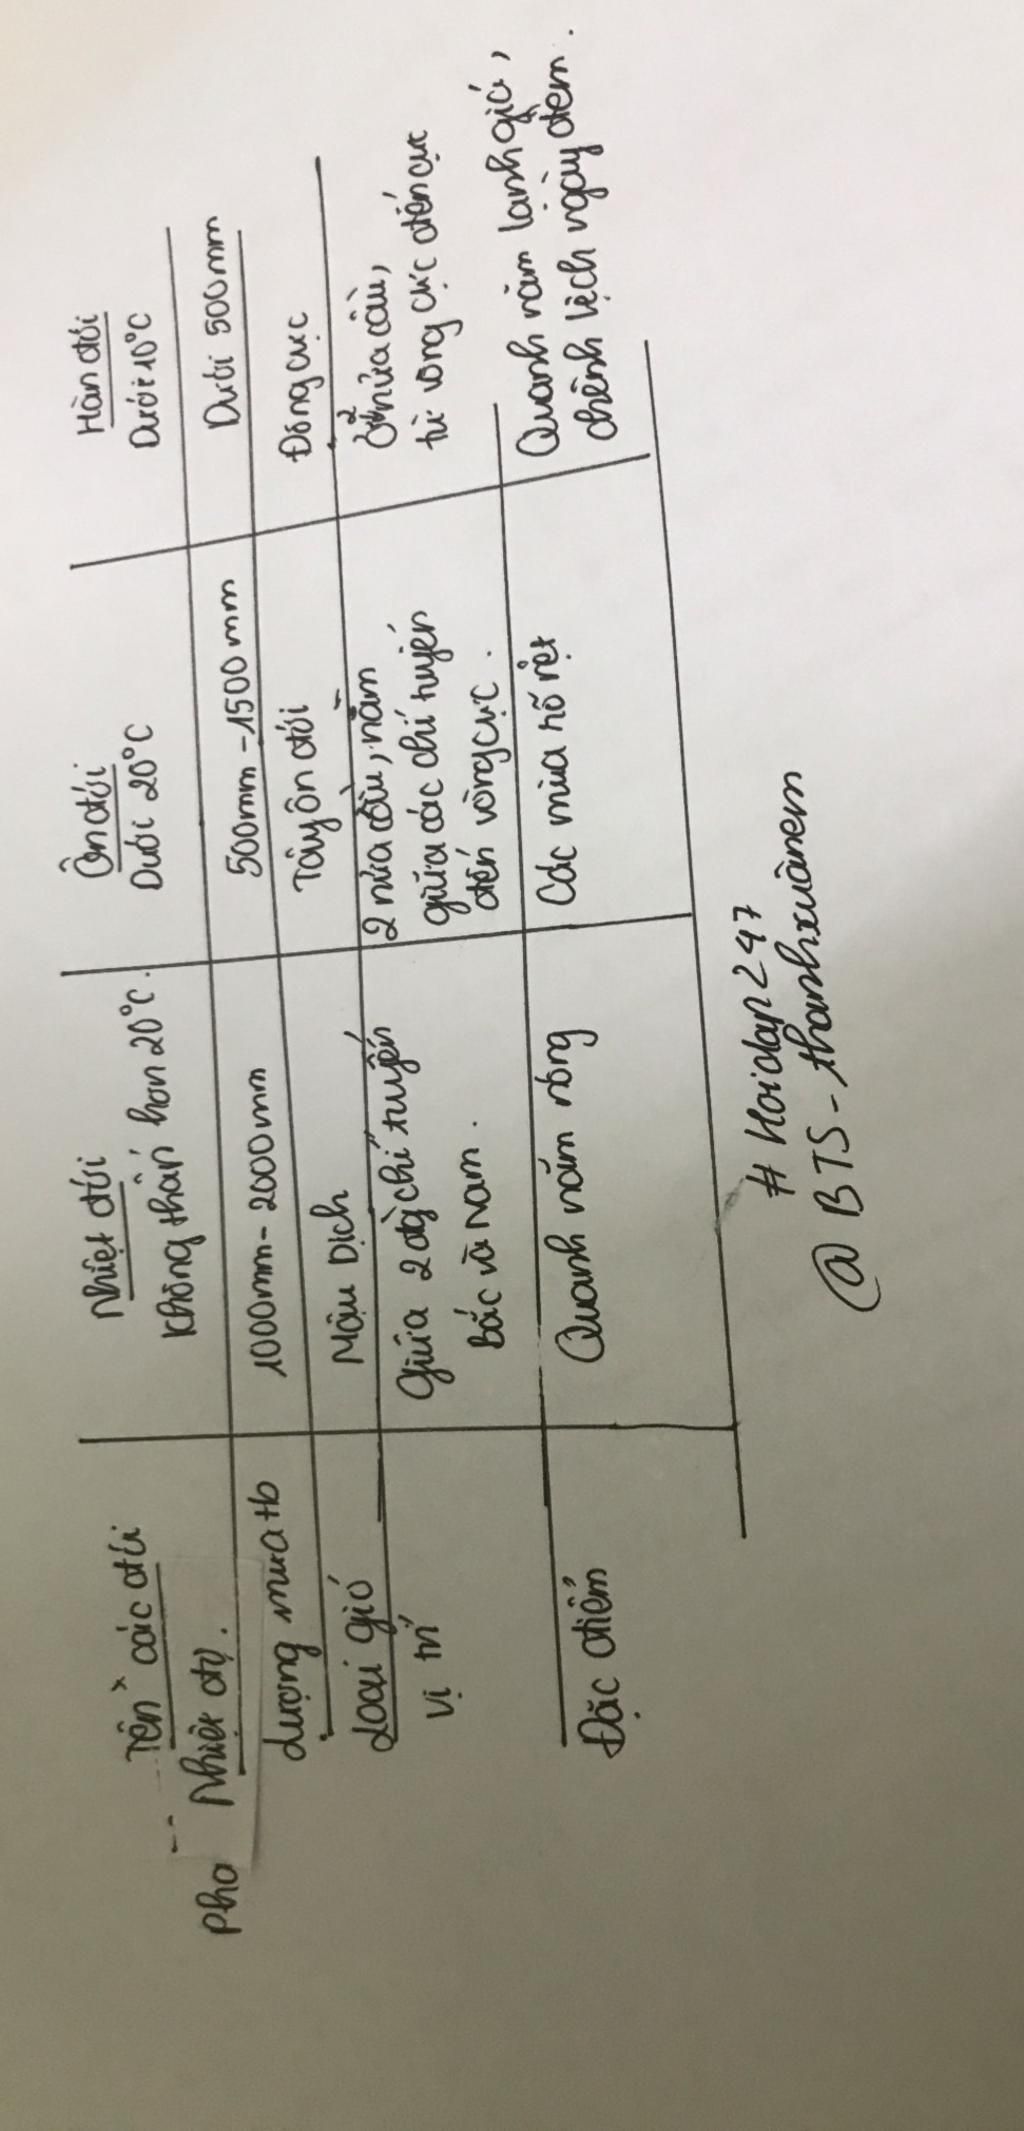 Tên các đới
Nhiệt đới
Ôn đới
Hàn đới
Pho
Nhiệt độ.
Không thấp hơn 20°C.
Dưới 20°C
Dưới 10°C
Lượng mưa tb
1000mm - 2000mm
500mm - 1500mm
Dưới 500mm
Loại gió
Mậu Dịch
Tây ôn đới
Đông cực
Vị trí
Giữa 2 chí tuyến
Bắc và Nam.
2 nửa cầu, nằm
giữa các chí tuyến
đến vòng cực.
Ở 2 nửa cầu,
từ vòng cực đến cực
Đặc điểm
Quanh năm nóng
Các mùa rõ rệt
Quanh năm lạnh giá,
chênh lệch ngày đêm.
# Hoidap247
@ BTS - thanhxuânem